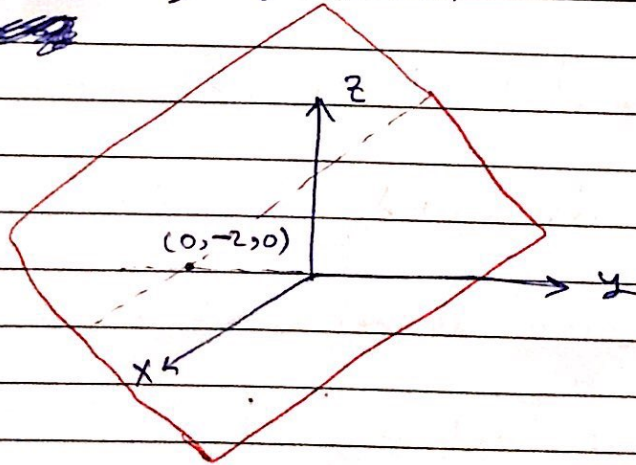 z
(0,-2,0)
y
x